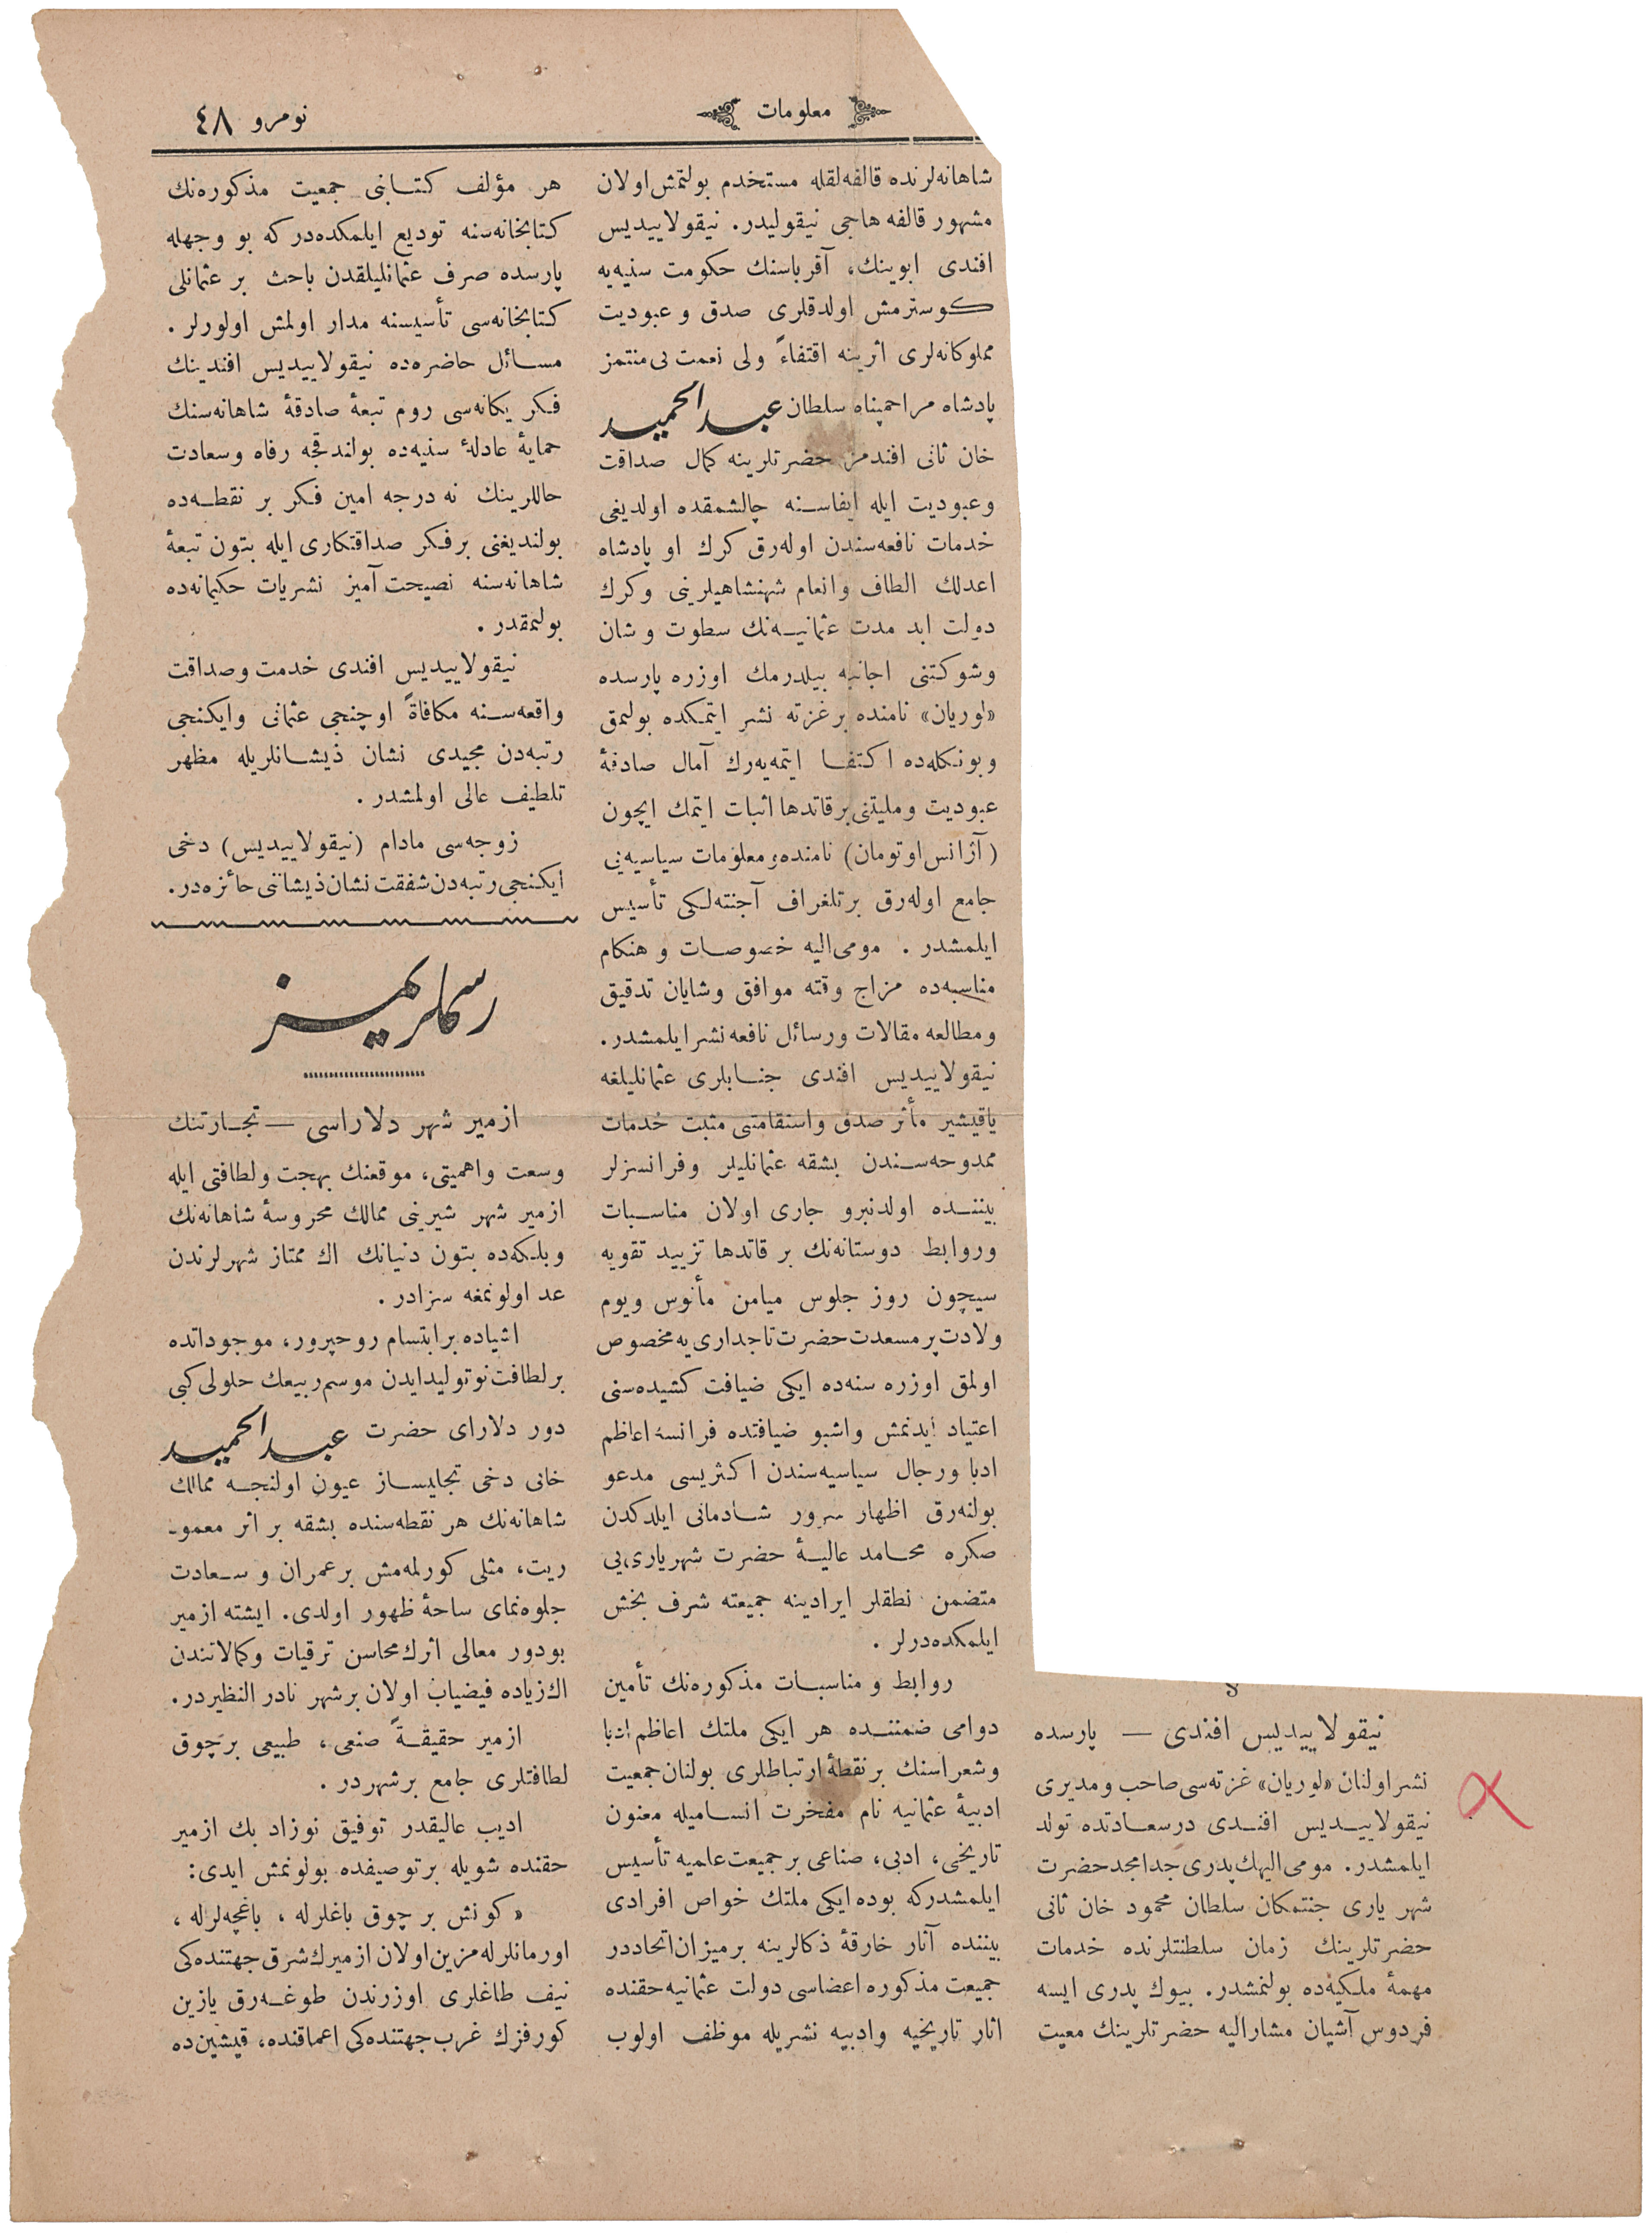 معلومات
نومرو ٤٨
نیقولاییدیس افندی — پارسده
نشر اولنان «لوریان» غزته‌سی صاحب و مدیری
نیقولاییدیس افندی درسعادتده تولد
ایلمشدر. مومی الیهك پدری جد امجد حضرت
شهر یاری جنتمکان سلطان محمود خان ثانی
حضرتلرینك زمان سلطنتلرنده خدمات
مهمهٔ ملکیه‌ده بولنمشدر. بیوك پدری ایسه
فردوس آشیان مشارالیه حضرتلرینك معیت
شاهانه‌لرنده قالفه‌لقله مستخدم بولنمش اولان
مشهور قالفه هاجی نیقولیدر. نیقولاییدیس
افندی ابوینك، آقرباسنك حکومت سنیه‌یه
کوسترمش اولدقلری صدق و عبودیت
مملوکانه‌لری اثرینه اقتفاءً ولی نعمت بی منتمز
پادشاه مراحمپناه سلطان عبد الحمید
خان ثانی افندمز حضرتلرینه کمال صداقت
وعبودیت ایله ایفاسنه چالشمقده اولدیغی
خدمات نافعه‌سندن اوله‌رق كرك او پادشاه
اعدلك الطاف وانعام شهنشاهیلرینی وكرك
دولت ابد مدت عثمانیه‌نك سطوت و شان
وشوکتنی اجانبه بیلدرمك اوزره پارسده
«لوریان» نامنده بر غزته نشر ایتمکده بولنمق
وبونکله‌ده اکتفا ایتمه‌یه‌رك آمال صادقهٔ
عبودیت وملیتنی برقاتدها اثبات ایتمك ایچون
(آژانس اوتومان) نامنده، معلومات سیاسیه‌یی
جامع اوله‌رق بر تلغراف آجنته‌لکی تأسیس
ایلمشدر . مومی الیه خصوصات و هنکام
مناسبه‌ده مزاج وقته موافق وشایان تدقیق
ومطالعه مقالات ورسائل نافعه نشر ایلمشدر.
نیقولاییدیس افندی جنابلری عثمانلیلغه
یاقیشیر مأثر صدق واستقامتی مثبت خدمات
ممدوحه‌سندن بشقه عثمانلیلر وفرانسزلر
بیننده اولدنبرو جاری اولان مناسبات
وروابط دوستانه‌نك بر قاتدها تزیید تقویه
سیچون روز جلوس میامن مأنوس ویوم
ولادت پر مسعدت حضرت تاجداری‌یه مخصوص
اولمق اوزره سنه‌ده ایکی ضیافت کشیده‌سنی
اعتیاد ایدنمش واشبو ضیافتده فرانسه اعاظم
ادبا ورجال سیاسیه‌سندن اکثریسی مدعو
بولنه‌رق اظهار سرور شادمانی ایلدکدن
صکره محامد عالیهٔ حضرت شهریاری‌یی
متضمن نطقلر ایرادینه جمیعته شرف بخش
ایلمکده‌درلر .
روابط و مناسبات مذکوره‌نك تأمین
دوامی ضمننده هر ایکی ملتك اعاظم ادبا
وشعراسنك بر نقطهٔ ارتباطلری بولنان جمعیت
ادبیهٔ عثمانیه نام مفخرت انسامیله معنون
تاریخی، ادبی، صناعی بر جمیعت علمیه تأسیس
ایلمشدرکه بوده ایکی ملتك خواص افرادی
بیننده آثار خارقهٔ ذکالرینه بر میزان اتحاددر
جمیعت مذکوره اعضاسی دولت عثمانیه حقنده
اثار تاریخیه وادبیه نشریله موظف اولوب
هر مؤلف کتابنی جمعیت مذکوره‌نك
کتابخانه‌سنه تودیع ایلمکده‌در که بو وجهله
پارسده صرف عثمانلیلقدن باحث بر عثمانلی
کتابخانه‌سی تأسیسنه مدار اولمش اولورلر .
مسائل حاضره‌ده نیقولاییدیس افندینك
فکر یکانه‌سی روم تبعهٔ صادقهٔ شاهانه‌سنك
حمایهٔ عادلهٔ سنیه‌ده بولندقجه رفاه وسعادت
حاللرینك نه درجه امین فکر بر نقطه‌ده
بولندیغنی بر فکر صداقتکاری ایله بتون تبعهٔ
شاهانه‌سنه نصیحت آمیز نشریات حکیمانه‌ده
بولنمقدر .
نیقولاییدیس افندی خدمت وصداقت
واقعه‌سنه مکافاةً اوچنجی عثمانی وایکنجی
رتبه‌دن مجیدی نشان ذیشانلریله مظهر
تلطیف عالی اولمشدر .
زوجه‌سی مادام (نیقولاییدیس) دخی
ایکنجی رتبه‌دن شفقت نشان ذیشاننی حائزه‌در.
رسملریمز
ازمیر شهر دلاراسی — تجارتنك
وسعت واهمیتی، موقعنك بهجت ولطافتی ایله
ازمیر شهر شیرینی ممالك محروسهٔ شاهانه‌نك
وبلکه‌ده بتون دنیانك اك ممتاز شهرلرندن
عد اولونمغه سزادر .
اشیاده بر ابتسام روحپرور، موجوداتده
بر لطافت نو تولید ایدن موسم ربیعك حلولی کبی
دور دلارای حضرت عبد الحمید
خانی دخی تجلیساز عیون اولنجه ممالك
شاهانه‌نك هر نقطه‌سنده بشقه بر اثر معمو-
ریت، مثلی کورلمه‌مش بر عمران و سعادت
جلوه‌نمای ساحهٔ ظهور اولدی. ایشته ازمیر
بودور معالی اثرك محاسن ترقیات وکمالاتندن
اك زیاده فیضیاب اولان بر شهر نادر النظیردر.
ازمیر حقیقةً صنعی، طبیعی بر چوق
لطافتلری جامع بر شهردر .
ادیب عالیقدر توفیق نوزاد بك ازمیر
حقنده شویله بر توصیفده بولونمش ایدی:
«کونش بر چوق باغلرله ، باغچه‌لرله ،
اورمانلرله مزین اولان ازمیرك شرق جهتنده‌کی
نیف طاغلری اوزرندن طوغه‌رق یازین
کورفزك غرب جهتنده‌کی اعماقنده، قیشین ده